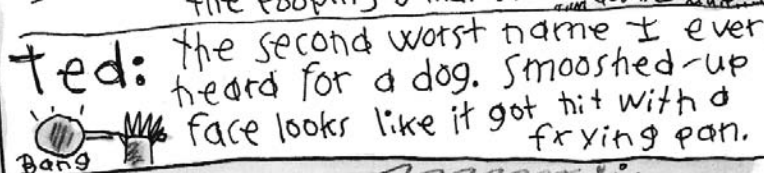 Ted: the second worst name I ever
heard for a dog. Smooshed-up
face looks like it got hit with a
frying pan.
Bang